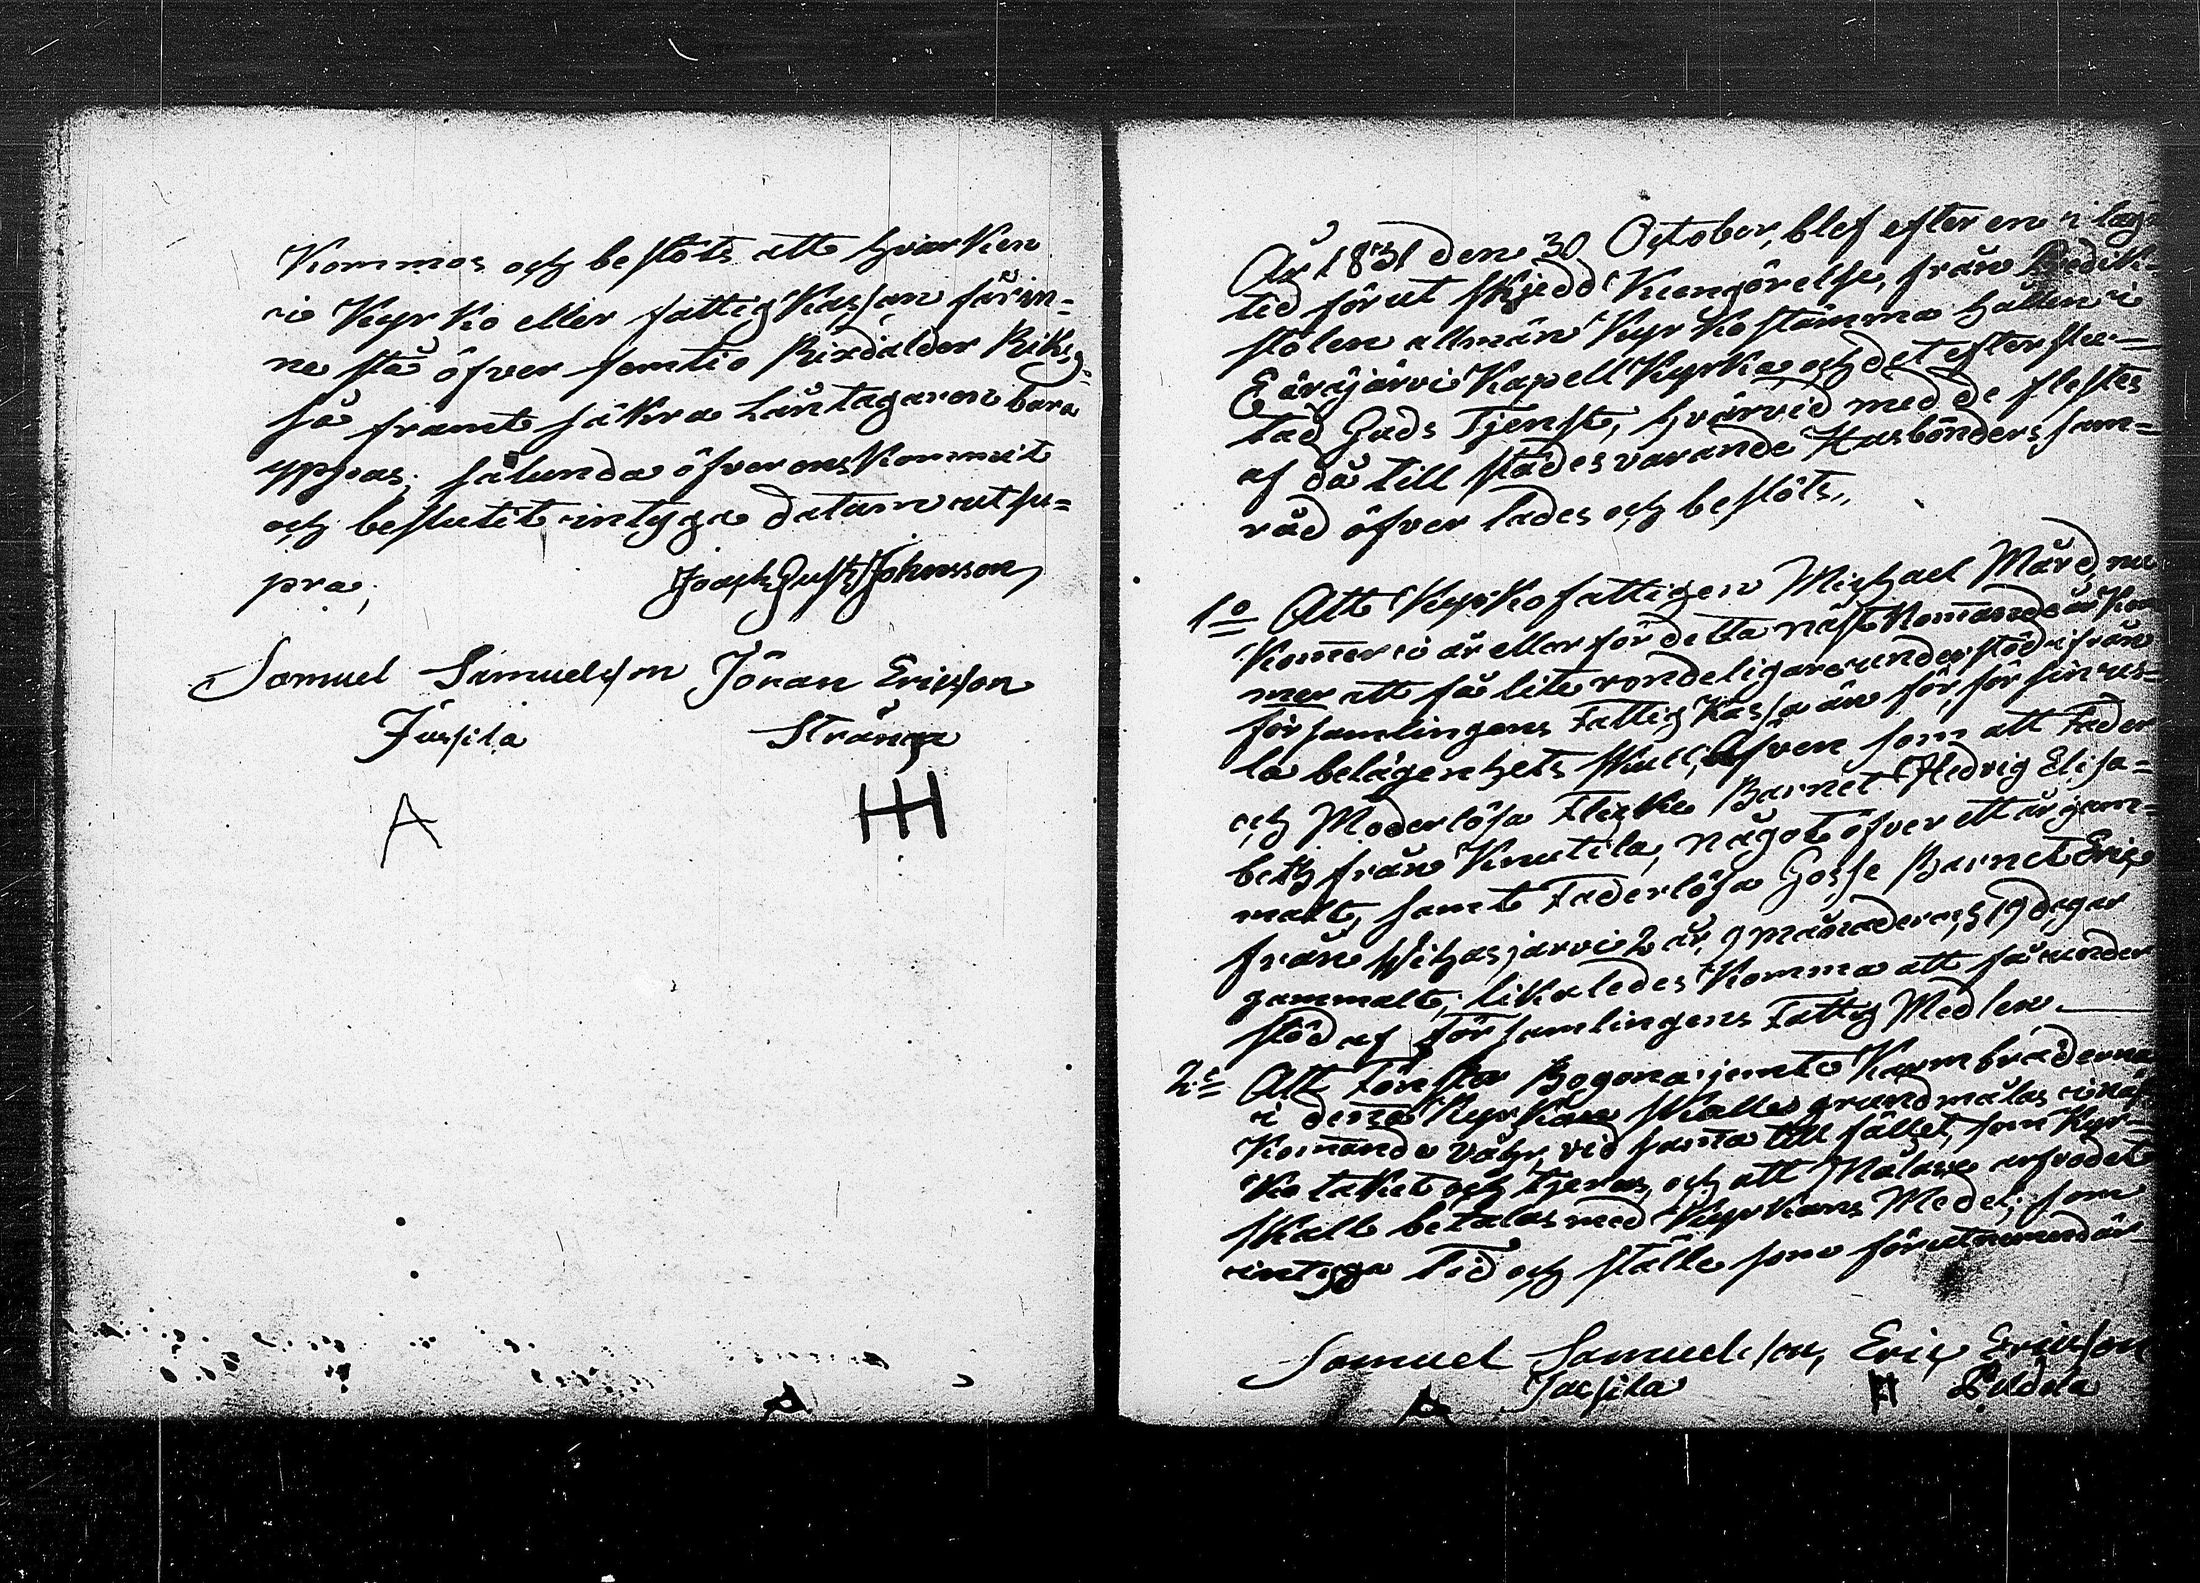 Kommos och beslöts att hvarken
i Kyrko eller fattig Kassan får in-
ne stå öfver femtio Rixdalder Riksg:
så framt säkra Låntagaren bara
yppas; sålunda öfverenskommit
och beslutit intyga datum utsu-
pra,
Joach Gust Johnsson
Samuel Samuelsson Jöran Ericsson
Jussila Stränga
A
År 1831 den 30 October, blef efter en i laga
tid förut skjedd Kungörelse, från Predik-
stolen allmän Kyrkostämma hållen i
Eräjärvi Kapell Kyrka och det efter slu-
tad Guds Tjenst, hvarvid med de flestes
af då till städes varande Husbönders sam-
råd öfver lades och beslöts,,
1o Att Kyrkofattigen Michael Mård, nu
Komer i år eller för detta näst Komande år Kom
mer att få lite rondeligare understöd ifrån
församlingens Fattig Kassa än för, för sin us-
la belägenhets skull, Äfven som att Fader
och Moderlösa Flicke Barnet Hedvig Elisa-
beth från Knutila, något öfver ett år gam-
malt, samt Faderlösa Gosse Barnet Eric
från Wihasjarvi 2 år, 9 månader och 19 dagar
gammalt, likaledes Komma att få under
stöd af Församlingens Fattig Medlen
2o Att Fönster Bogona jemte Karmbräderna
i denna Kyrkan skalle grundmålas i näst
Komande våhr, vid samma till fället, som Kyr-
ko taket och tjeras, och att Målare arfvodet
skall betalas med Kyrkans Medel; som
intyga Tid och ställe som förut nämnd är
Samuel Samuelsson, Eric Ericsson
Jussila Puldola